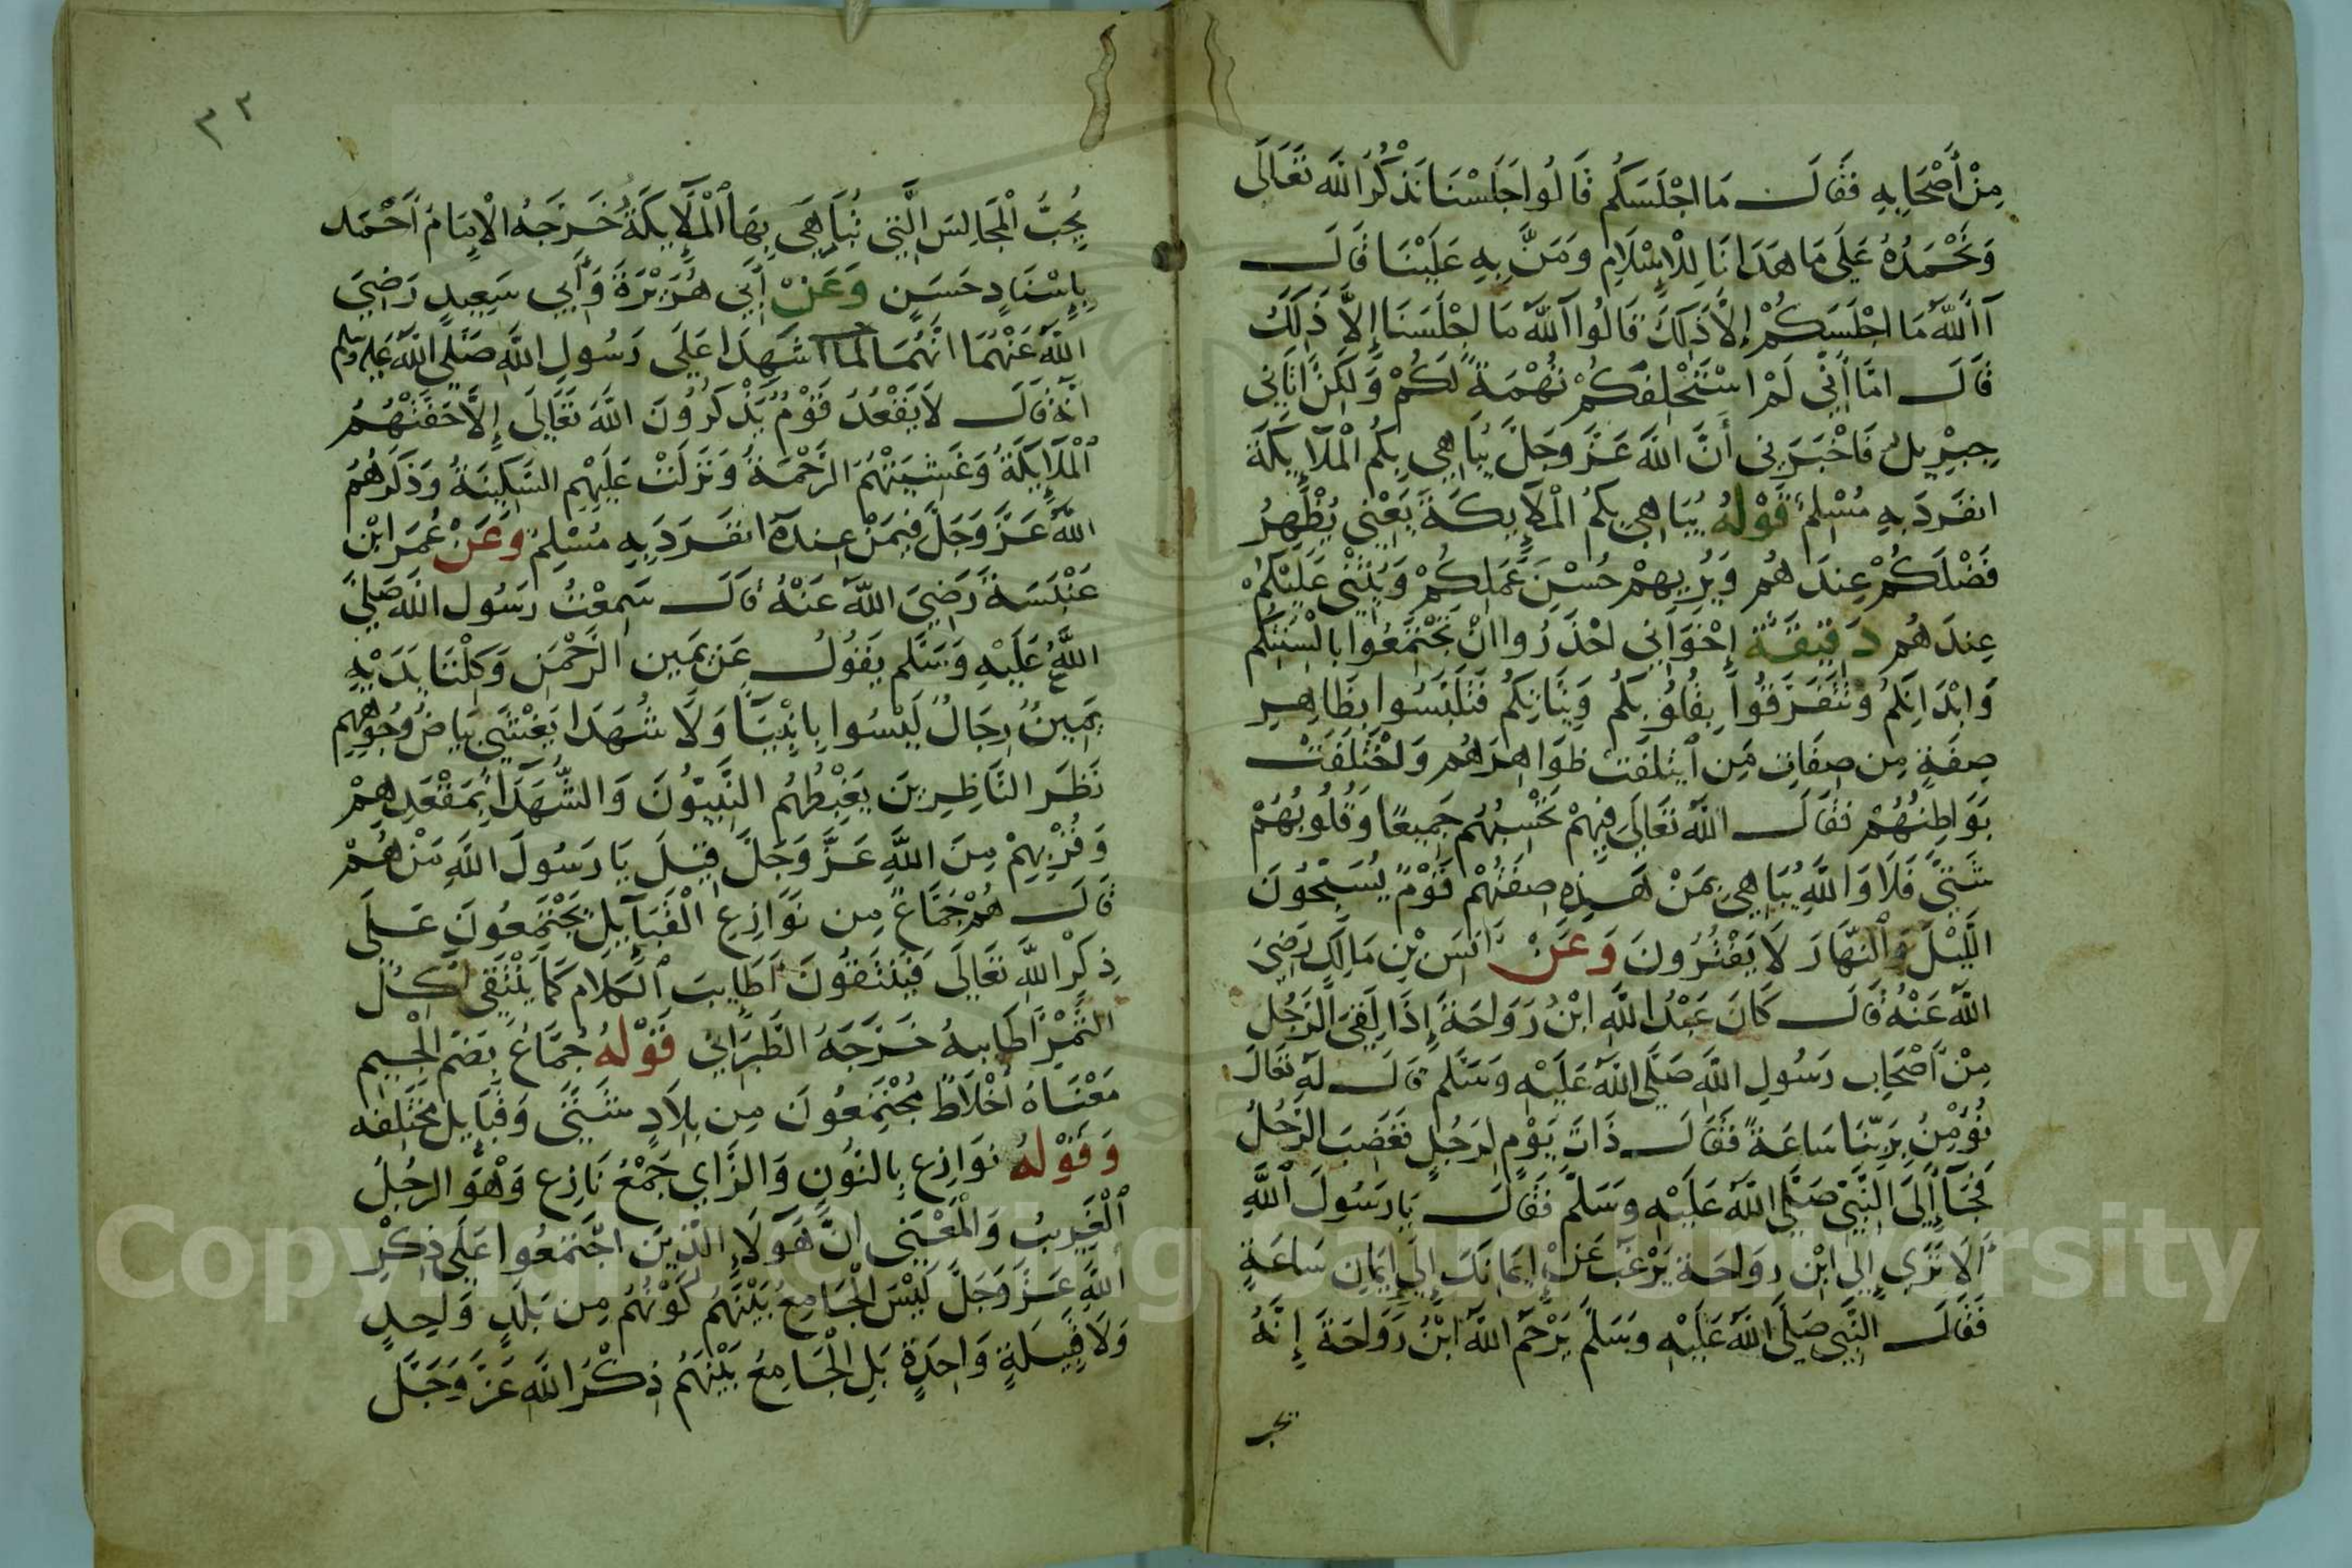 مِنْ أَصْحَابِهِ فَقَالَ مَا اجْلَسَكُم قَالُوا جَلَسْنَا نَذْكُرُ اللَّهَ تَعَالَى
وَنَحْمَدُهُ عَلَى مَا هَدَانَا لِلْإِسْلَامِ وَمَنَّ بِهِ عَلَيْنَا قَالَ
آاللَّهُ مَا اجْلَسَكُمْ إِلَّا ذَلِكَ قَالُوا آللَّهُ مَا اجْلَسَنَا إِلَّا ذَلِكَ
قَالَ امَّا أَنِّي لَمْ اسْتَحْلِفكُمْ تُهْمَةً لَكُمْ وَلَكِنْ اتَانِي
جِبْرِيلُ فَاخْبَرَنِي أَنَّ اللَّهَ عَزَّ وَجَلَّ يُبَاهِي بِكُمُ الْمَلَائِكَةَ
انفَرَدَ بِهِ مُسْلِمٌ قَوْلُهُ يُبَاهِي بِكُمُ الْمَلَائِكَةَ يَعْنِي يُظْهِرُ
فَضْلَكُمْ عِندَهُم وَيُرِيهِمْ حُسْنَ عَمَلِكُمْ وَيُثْنِي عَلَيْكُمْ
عِندَهُم دَقِيقَة إِخْوَانِي احْذَرُوا انْ تَجْتَمِعُوا بِالْسِنَتِكُم
وَابْدَانِكُمُ وَتَتَفَرَّقُوا بِقُلُوبِكُم وَنِيَّاتِكُم فَتَلَبَّسُوا بِظَاهِرِ
صِفَةٍ مِن صِفَاتِ مَنِ ايتلَفَت ظوَاهِرَهُم وَاخْتَلَفَتْ
بَوَاطِنُهُمْ فَقَالَ اللَّهُ تَعَالَى فِيهِمْ تَحْسِبُهُم جَمِيعًا وَقُلُوبُهُمْ
شَتَّى فَلَا وَاللَّهِ يُبَاهِي بِمَنْ هَذِهِ صِفَتُهُمْ قَوْمٌ يُسَبِّحُونَ
اللَّيْلَ وَالنَّهَارَ لَا يَفْتُرُونَ وَعَنْ انَسِ بْنِ مَالِكٍ رَضِيَ
اللَّهُ عَنْهُ قَالَ كَانَ عَبْدُ اللَّهِ ابْنُ رَوَاحَةَ إِذَا لَقِيَ الرَّجُلَ
مِنْ أَصْحَابِ رَسُولِ اللَّهِ صَلَّى اللَّهُ عَلَيْهِ وَسَلَّم قَالَ لَهُ تَعَالَ
نُؤْمِنُ بِرَبِّنَا سَاعَةً فَقَالَ ذَاتَ يَوْمٍ لِرَجُلٍ فَغَضِبَ الرَّجُلُ
فَجَآ إِلَى النَّبِيِّ صَلَّى اللَّهُ عَلَيْهِ وَسَلَّمَ فَقَالَ يَا رَسُولَ اللَّهِ
أَلَا تَرَى إِلَى ابْنِ رِوَاحَة يَرْغَبُ عَنْ إِيمَانِكَ إِلَى إِيمَانِ سَاعَةٍ
فَقَالَ النَّبِي صَلَّى اللَّهُ عَلَيْهِ وَسَلَّمَ يَرْحَمُ اللَّهُ ابْنُ رَوَاحَةَ إِنَّهُ
يحب
٣٢
يُحِبُّ الْمَجَالِسَ الَّتِي تُبَاهَى بِهَا الْمَلَائِكَةُ خَرَّجَهُ الْإِمَامُ أَحْمَد
بِإِسْنَادٍ حَسَنٍ وَعَنْ أَبِي هُرَيْرَةَ وَأَبِي سَعِيدٍ رَضِيَ
اللَّهُ عَنْهُمَا انَّهُمَا شَهِدَا عَلَى رَسُولِ اللَّهِ صَلَّى اللَّهُ عَلَيْهِ وَسَلَّم
أَنَّهُ قَالَ لَا يَقْعُدُ قَوْمٌ يَذْكُرُونَ اللَّهَ تَعَالَى إِلَّا حَفَّتْهُمُ
الْمَلَائِكَةُ وَغَشِيَتْهُمُ الرَّحْمَةُ وَنَزَلَتْ عَلَيْهِمِ السَّكِينَةُ وَذَكَرَهُمُ
اللَّهُ عَزَّ وَجَلَّ فِيمَنْ عِندَهُ انفَرَدَ بِهِ مُسْلِمٌ وَعَنْ عُمَرَ ابْنِ
عَنْبَسَةَ رَضِيَ اللَّهُ عَنْهُ قَالَ سَمِعْتُ رَسُول اللَّهِ صَلَّى
اللَّهُ عَلَيْهِ وَسَلَّم يَقُولُ عَنْ يَمِين الرَّحْمَنِ وَكِلْتَا يَدَيْهِ
يَمِينٌ رِجَالٌ لَيْسُوا بِانْبِيَا وَلَا شُهَدَا يَغْشَى بَيَاضُ وُجُوهِهِم
نَظَرَ النَّاظِرِينَ يَغْبِطُهُم النَّبِيُّونَ وَالشُّهَدَاُ بِمَقْعَدِهِمْ
وَقُرْبِهِمْ مِنَ اللَّهِ عَزَّ وَجَلَّ قِيلَ يَا رَسُولَ اللَّهِ مَنْ هُمْ
قَالَ هُمْ جُمَّاعٌ مِن نَوَازِعِ الْقَبَآيِلِ يَجْتَمِعُونَ عَلَى
ذِكْرِ اللَّهِ تَعَالَى فَيَنْتَقُونَ أَطَايِبَ الْكَلَامِ كَمَا يَنْتَقِي آكِلُ
التَّمْرِ أَطَايِبهُ خَرَّجَهُ الطَّبَرَانِي قَوْلهُ جُمَّاعٌ بِضَمِّ الْجِيمِ
مَعْنَاهُ أَخْلَاطٌ مُجْتَمِعُونَ مِن بِلَادٍ شَتَّى وَقَبَآيِل مُخْتَلِفَه
وَقَوْلهُ نَوَازِع بِالنُّونِ وَالزَّاي جَمْعُ نَازِعِ وَهُوَ الرجُلُ
الْغَرِيبُ وَالْمَعْنَى انَّ هَؤُلَاءِ الَّذِينَ اجْتَمَعُوا عَلَى ذِكْرِ
اللَّهِ عَزَّ وَجَلَّ لَيْسَ الْجَامِعُ بَيْنَهُمُ كَوْنُهُمُ مِن بَلَدٍ وَاحِدٍ
وَلَا قَبِيلَةٍ وَاحِدَةٍ بَلِ الْجَامِعُ بَيْنَهُمُ ذِكْرُ اللَّهِ عَزَّ وَجَلَّ
Copyright © King Saud University